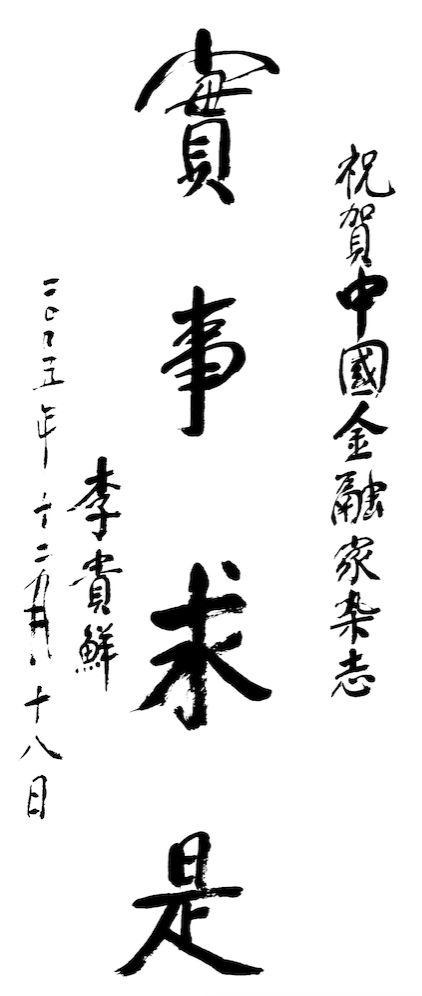 祝賀中國金融家杂志
實事求是
李貴鮮
二〇〇五年十二月十八日